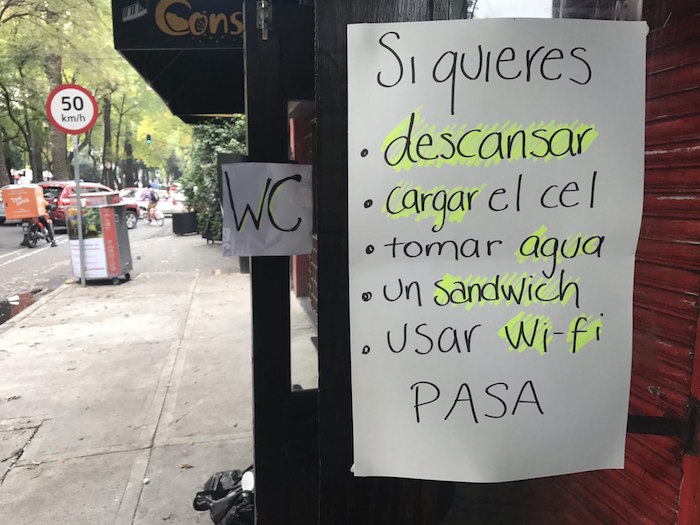 Cons
50
km/h
WC
Si quieres
• descansar
• cargar el cel
• tomar agua
• un sandwich
• usar Wi-fi
PASA